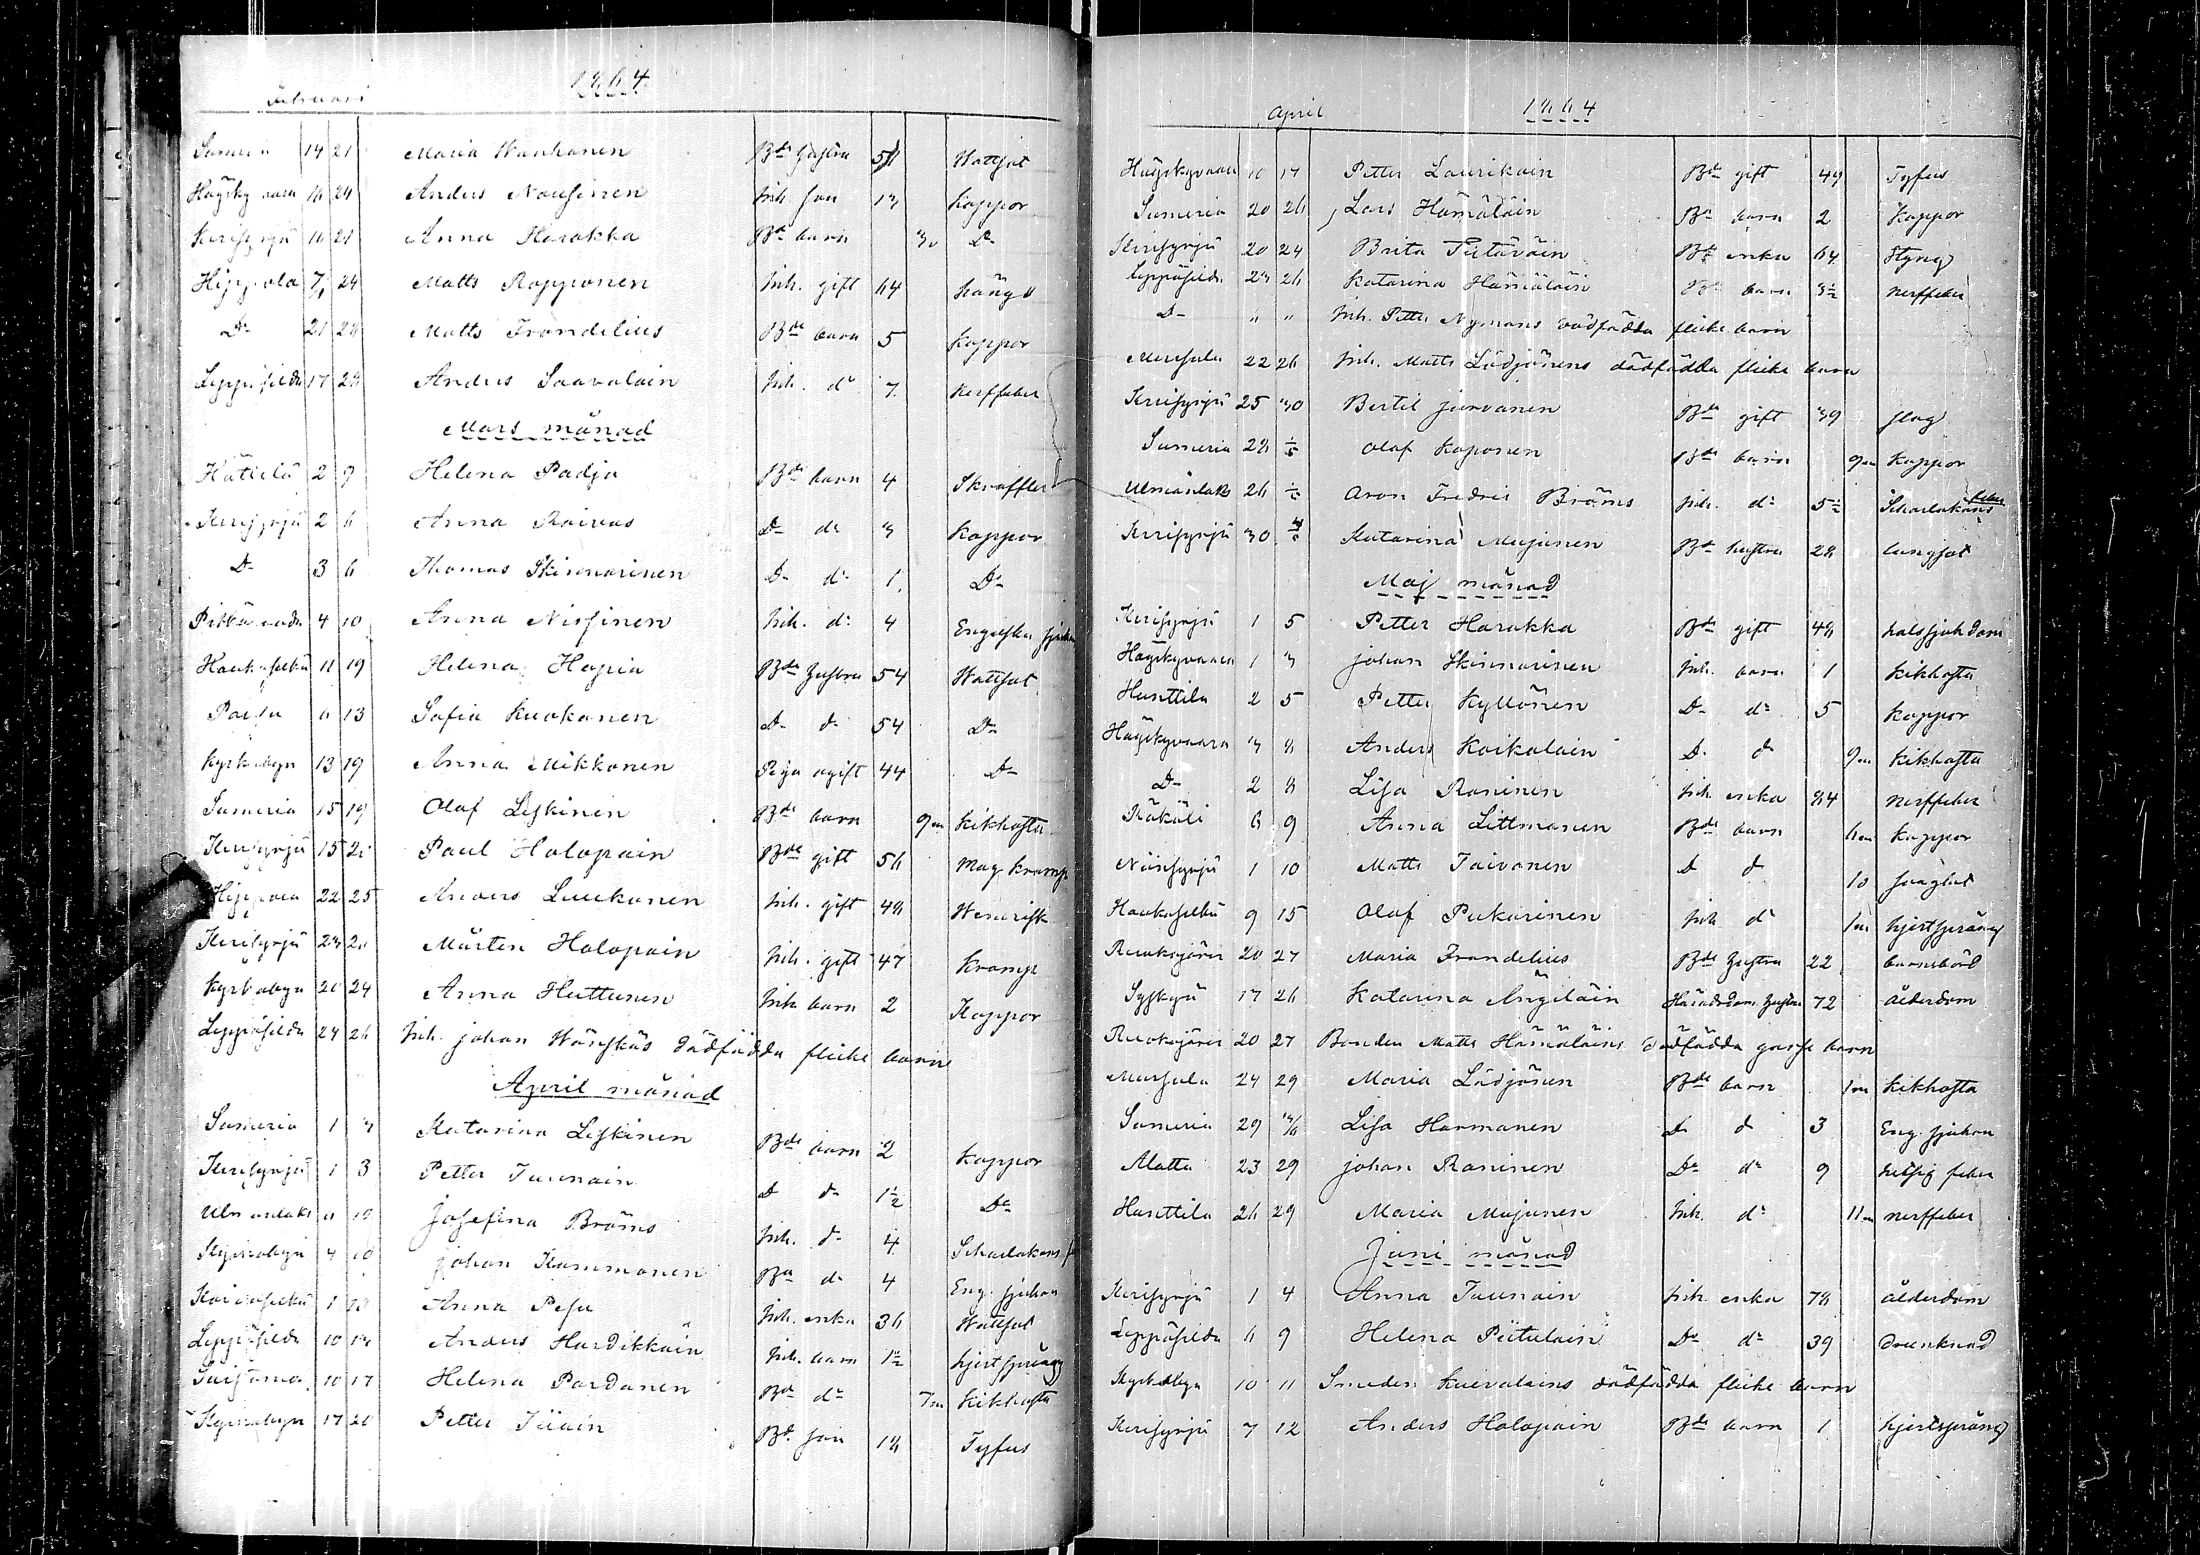 1864
Februari
Sumeria 14 21 Maria Wanhanen Bde hustru Wattsot
16 24 Anders Nousinen Inh. son 13 koppor
Kerisyrjä 16 21 Anna Harakka Bde barn Do
Hippola 24 Matts Ropponen Inh. gift 64 hängd
Do 21 28 Matts Frondelius Bde barn 5 koppor
Leppäsilda 17 28 Anders Saavalain Inh. do 7 Nerffeber
Mars månad
Hättilä 2 9 Helena Padja Bde barn 4
Kerisyrjä 2 6 Anna Raivas Do do 3 koppor
Do 3 6 Thomas Skinnarinen Do do 1 Do
4 10 Anna Nissinen Inh. do 4 Engelska sjukan
Haukaselkä 11 19 Helena Hapia Bde hustru 54 Wattsot
6 13 Sofia Kuokanen Do do 54 Do
Kyrkobyn 13 19 Anna Mikkonen Piga ogift 44 Do
Sumeria 15 19 Olof Leskinen Bde barn 9m kikhosta
Kerisyrjä 15 Paul Holopain Bde gift 56 Magkramp
Hippola 22 25 Anders Luukonen Inh. gift 48 Wenerisk
Kerisyrjä 23 Mårten Holopain Inh. gift 47 Kramp
Kyrkobyn 20 24 Anna Huttunen Inh barn 2 Koppor
Leppäsilda 24 26 Inh. Johan Wänskäs dödfödda flicke barn
April månad
Sumeria 1 3 Katarina Leskinen Bde barn 2 koppor
Kerisyrjä 1 3 Petter Tuunain Do do 1½ Do
Josefina Broms Inh. do 4 Scharlakans f
Kyrkobyn 4 10 Johan Kammonen Bde do 4 Eng. sjukan
1 10 Anna Pesu Inh. enka 36 Wattsot
Leppäsilda 10 Anders Hardikkain Inh. barn 1½ hjertsprång
10 17 Helena Pardanen Bde do 7m Kikhosta
Kyrkobyn 17 20 Petter Bde son 18 Tyfus
April
1864
10 17 Petter Laurikain Bde gift 49 Tyfus
Sumeria 20 26 Lars Hämäläin Bde barn 2 Koppor
Kerisyrjä 20 24 Brita Pitäräin Bde enka 64 Styng
Leppäsilda 23 26 Katarina Hämäläin Bde barn 3½ Nerffeber
Do " " Inh. Petter Nymans dödfödda flicke barn
Mursula 22 26 Inh. Matts Lödjönens dödfödda flicke barn
Kerisyrjä 25 30 Bertil Jurvanen Bde gift 39 slag
Sumeria 28 Olof Koponen Bde barn 9m koppor
Ulmanlaks 26 Aron Fredric Broms Inh. do 5½ Scharlakans feber
Kerisyrjä 30 Katarina Mujunen Bde hustru 28 lungsot
Maj månad
Kerisyrjä 1 5 Petter Harakka Bde gift 48 halssjukdom
1 3 Johan Skinnarinen Inh. barn 1 kikhosta
Husttila 2 5 Petter Kyllönen Do do 5 koppor
3 8 Anders Kaikalain Do do 9m kikhosta
Do 2 8 Lisa Raninen Inh enka 84 Nerffeber
Räkäli 6 9 Anna Littmanen Bde barn 6m koppor
Näisyrjä 1 10 Matts Taivanen Do do 10
Haukaselkä 9 15 Olof Pukarinen Inh do 1m hjertsprång
Ruokojärvi 20 27 Maria Frondelius Bde hustru 22 barnsbörd
Syskyä 17 26 Katarina Ängiläin Häradsdom. hustru 72 ålderdom
Ruokojärvi 20 27 Bonden Matts Hämäläins dödfödda gosse barn
Mursula 24 29 Maria Lödjönen Bde barn 1m kikhosta
Sumeria 29 Lisa Harmanen Do do 3 Eng. sjukan
Alattu 23 29 Johan Raninen Do do 9 hetsig feber
Husttila 26 29 Maria Mujunen Inh. do 11m nerffeber
Juni månad
Kerisyrjä 1 4 Anna Tuunain Inh enka 78 ålderdom
Leppäsilda 6 9 Helena Pitulain Do do 39 drunknad
Kyrkobyn 10 11 Smeden Kurvalains dödfödda flicke barn
Kerisyrjä 7 12 Anders Holopain Bde barn 1 hjertsprång